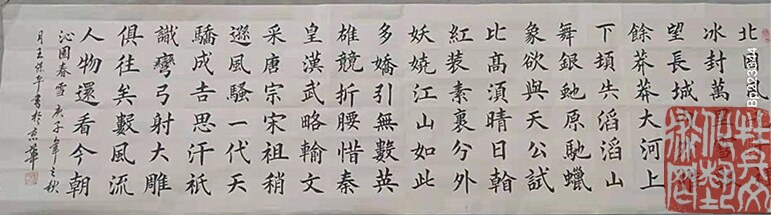 北國風
冰封萬里
望長城
餘莽莽大河上
下頓失滔滔山
舞銀蛇原馳蠟
象欲與天公試
比高須晴日
紅裝素裹分外
妖嬈江山如此
多嬌引無數英
雄競折腰惜秦
皇漢武略輸文
采唐宗宋祖稍
遜風騷一代天
驕成吉思汗祇
識彎弓射大雕
俱往矣數風流
人物還看今朝
沁園春雪 庚子年之秋
月王保平書於京華